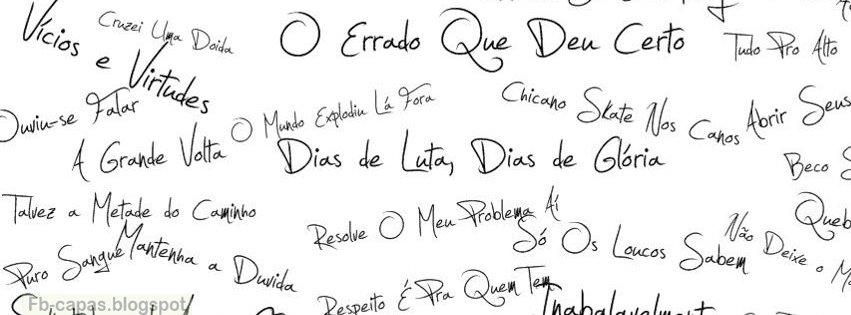 Vícios e Virtudes
Cruzei Uma Doida
O Errado Que Deu Certo
Tudo Pro Alto
Ouviu-se Falar
O Mundo Explodiu Lá Fora
Chicano
Skate Nos Canos
Abrir Seus
A Grande Volta
Dias de Luta, Dias de Glória
Beco S
Talvez a Metade do Caminho
Resolve O Meu Problema Aí
Só Os Loucos Sabem
Queb
Não Deixe o M
Puro Sangue
Mantenha a Duvida
Respeito É Pra Quem Tem
Fb-capas.blogspot